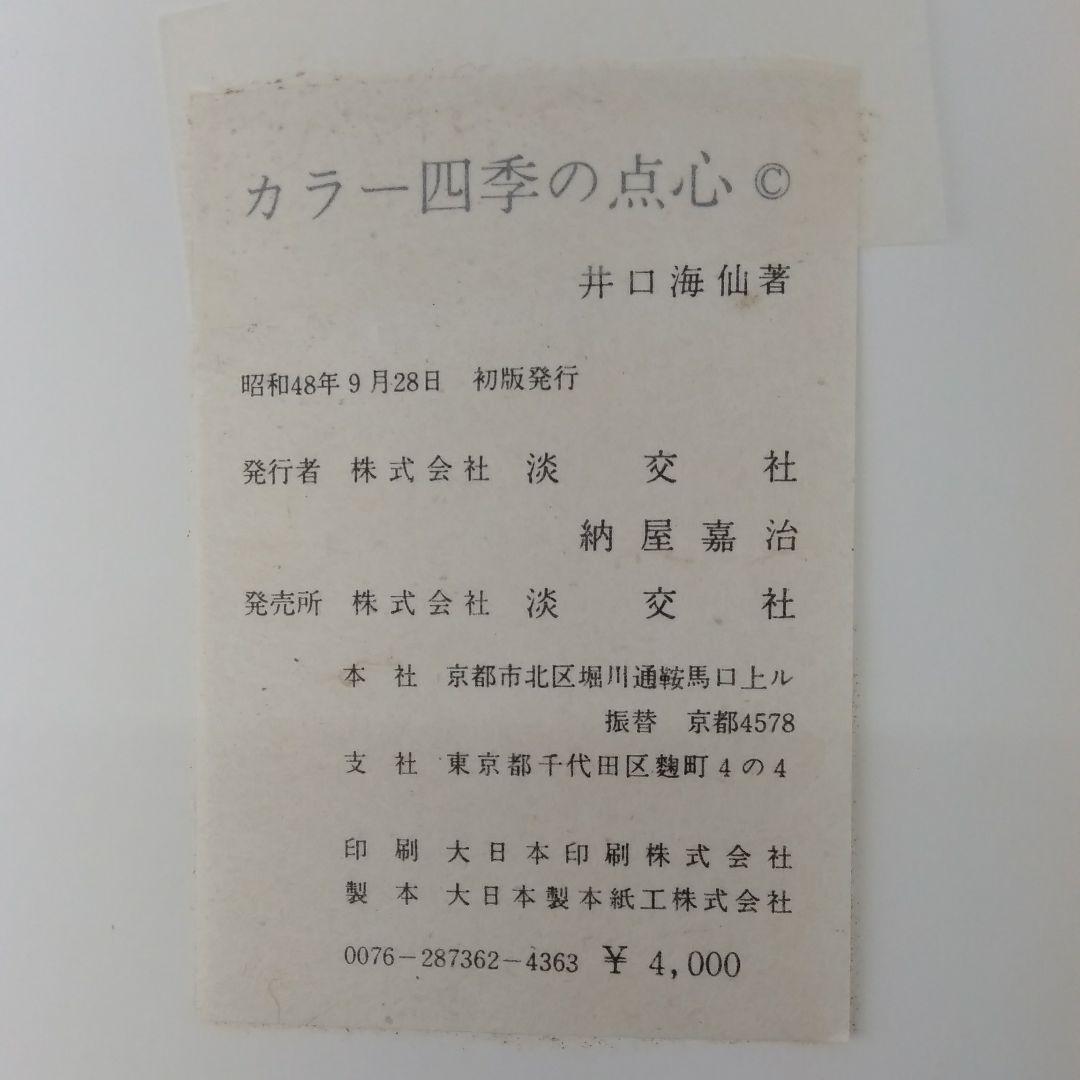 カラー四季の点心 ©
井口海仙著
昭和48年9月28日　初版発行
発行者　株式会社　淡交社
納屋嘉治
発売所　株式会社　淡交社
本　社　京都市北区堀川通鞍馬口上ル
振替　京都4578
支　社　東京都千代田区麴町4の4
印　刷　大日本印刷株式会社
製　本　大日本製本紙工株式会社
0076－287362－4363　￥ 4,000